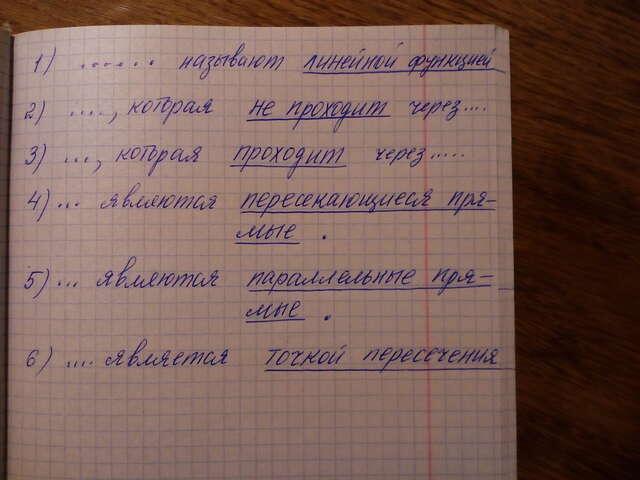 1) ...... называют линейной функцией
2) ...., которая не проходит через....
3) ..., которая проходит через.....
4) ... являются пересекающиеся пря-
мые .
5) ... являются параллельные пря-
мые .
6) .... является точкой пересечения